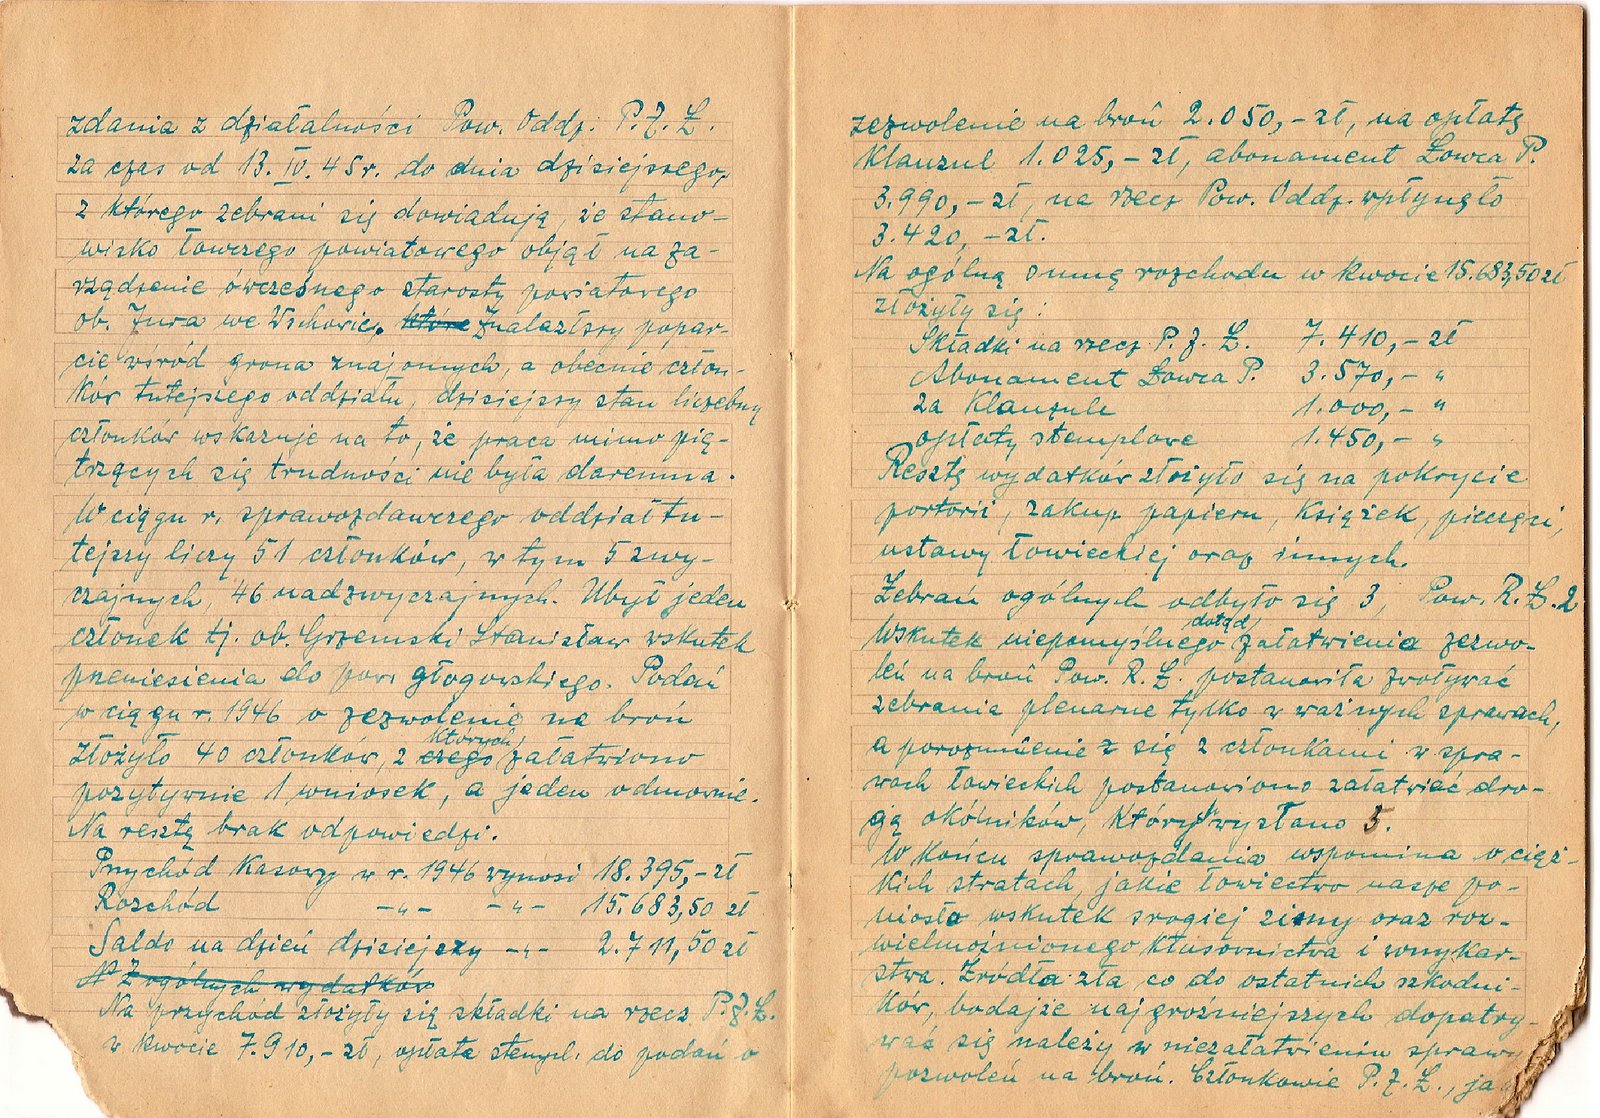 zdania z działalności Pow. Oddz. P.Z.Ł.
za czas od 13.IV.45r. do dnia dzisiejszego,
z którego zebrani się dowiadują, że stano-
wisko łowczego powiatowego objął na za-
rządzenie ówczesnego starosty powiatowego
ob. Jura we Wschowie. które Znalazłszy popar-
cie wśród grona znajomych, a obecnie człon-
ków tutejszego oddziału, dzisiejszy stan liczebny
członków wskazuje na to, że praca mimo pię-
trzących się trudności nie była daremna.
W ciągu r. sprawozdawczego oddział tu-
tejszy liczy 51 członków, w tym 5 zwy-
czajnych, 46 nadzwyczajnych. Ubył jeden
członek tj. ob. Grzemski Stanisław wskutek
przeniesienia do pow. głogowskiego. Podań
w ciągu r. 1946 o zezwolenie na broń
których
złożyło 40 członków, z czego załatwiono
pozytywnie 1 wniosek, a jeden odmownie.
Na resztę brak odpowiedzi.
Przychód kasowy w r. 1946 wynosi 18.395,- zł
Rozchód -„- -„- 15.683,50 zł
Saldo na dzień dzisiejszy -„- 2.711,50 zł
Z ogólnych wydatków
Na przychód złożyły się składki na rzecz P.Z.Ł.
w kwocie 7.910,- zł, opłata stempl. do podań o
zezwolenie na broń 2.050,- zł, na opłatę
Klauzul 1.025,- zł, abonament Łowca P.
3.990,- zł, na rzecz Pow. Oddz. wpłynęło
3.420,- zł.
Na ogólną sumę rozchodu w kwocie 15.683,50 zł
złożyły się:
Składki na rzecz P.Z.Ł. 7.410,- zł
Abonament Łowca P. 3.570,- „
za Klauzule 1.000,- „
opłaty stemplowe 1.450,- „
Resztę wydatków złożyło się na pokrycie
portorii, zakup papieru, książek, pieczęci,
ustawy łowieckiej oraz innych.
Zebrań ogólnych odbyło się 3, Pow. R.Ł. 2
dotąd
Wskutek niepomyślnego załatwienia zezwo-
leń na broń Pow. R.Ł. postanowiła zwoływać
zebrania plenarne tylko w ważnych sprawach,
a porozumienie z się z członkami w spra-
wach łowieckich postanowiono załatwiać dro-
gą okólników, których wysłano 5.
W końcu sprawozdania wspomina o cięż-
kich stratach, jakie łowiectwo nasze po-
niosło wskutek srogiej zimy oraz roz-
wielmożnionego kłusownictwa i wnykar-
stwa. Źródła zła co do ostatnich szkodni-
ków, bodajże najgroźniejszych dopatry-
wać się należy w niezałatwieniu sprawy
pozwoleń na broń. Członkowie P.Z.Ł.,